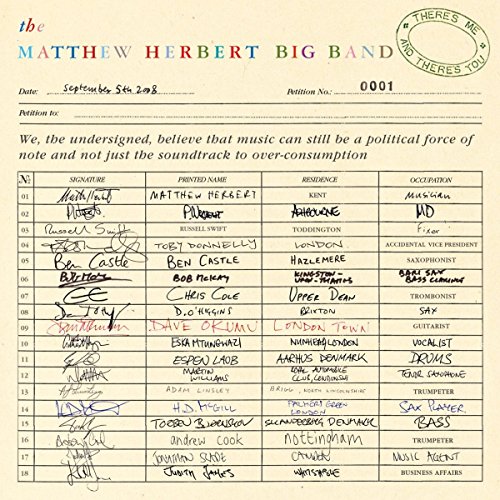 the
MATTHEW HERBERT BIG BAND
THERE'S ME
AND THERE'S YOU
Date: September 5th 2008 Petition No.: 0001
Petition to:
We, the undersigned, believe that music can still be a political force of
note and not just the soundtrack to over-consumption
No SIGNATURE PRINTED NAME RESIDENCE OCCUPATION
01 MATTHEW HERBERT KENT Musician
02 P. Wright ASHBOURNE MD
03 Russell Swift RUSSELL SWIFT TODDINGTON Fixer
04 TOBY DONNELLY LONDON ACCIDENTAL VICE PRESIDENT
05 Ben Castle BEN CASTLE HAZLEMERE SAXOPHONIST
06 BOB McKAY KINGSTON-UPON-THAMES BARI SAX BASS CLARINET
07 CHRIS COLE UPPER DEAN TROMBONIST
08 D. O'HIGGINS BRIXTON SAX
09 DAVE OKUMU LONDON TOWN GUITARIST
10 ESKA MTUNGWAZI NUNHEAD LONDON VOCALIST
11 ESPEN LAUB AARHUS DENMARK DRUMS
12 MARTIN WILLIAMS ROYAL AUTOMOBILE CLUB, LONDON TENOR SAXOPHONE
13 ADAM LINSLEY BRIGG, NORTH LINCOLNSHIRE TRUMPETER
14 H.D. McGILL PALMERS GREEN LONDON SAX PLAYER
15 SKANDERBORG DENMARK BASS
16 andrew cook nottingham TRUMPETER
17 JONATHAN SLADE CAMDEN MUSIC AGENT
18 JUDITH JAMES WHITSTABLE BUSINESS AFFAIRS